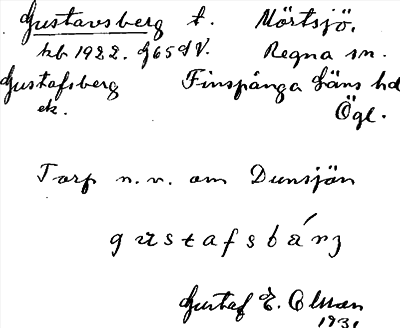 Gustavsberg t. Mörtsjö.
kb 1922. G65dV. Regna sn.
Gustafsberg Finspånga läns hd
ek. Ögl.
Torp n.v. om Dunsjön
gustafsbárj
Gustaf E. Olsson
1931